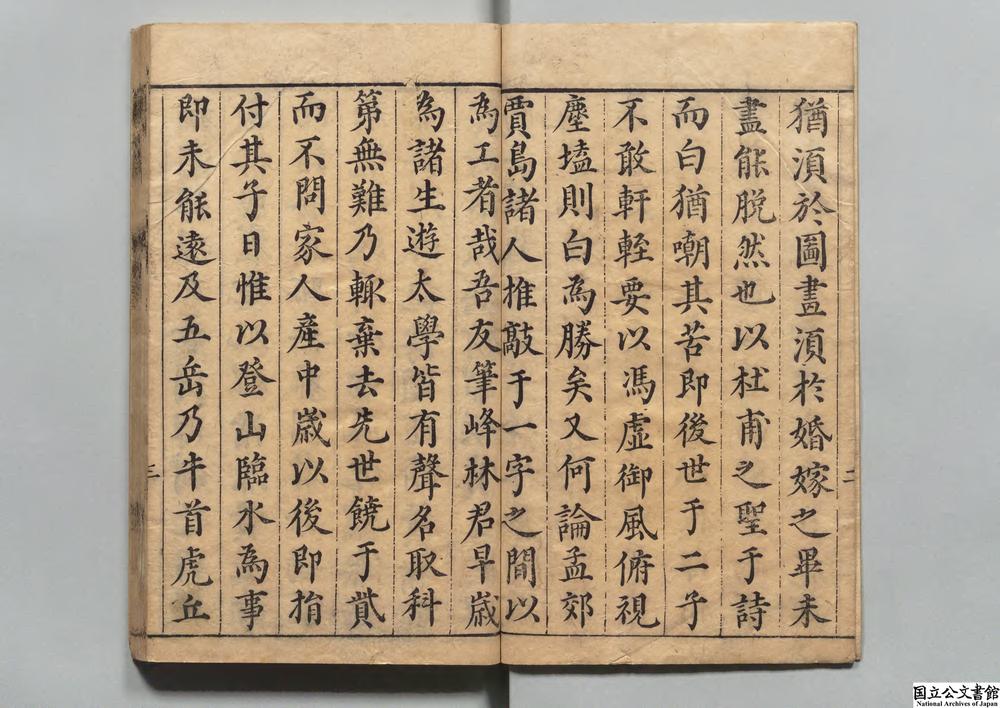 猶湏於圖畫湏於婚嫁之畢未
盡能脱然也以杜甫之聖于詩
而白猶嘲其苦即後世于二子
不敢軒輊要以馮虛御風俯視
塵壒則白為勝矣又何論孟郊
賈島諸人推敲于一字之間以
為工者哉吾友筆峰林君早歲
為諸生遊太學皆有聲名取科
第無難乃輒棄去先世饒于貲
而不問家人產中歲以後即捐
付其子日惟以登山臨水為事
即未能遠及五岳乃牛首虎丘
二
三
国立公文書館
National Archives of Japan